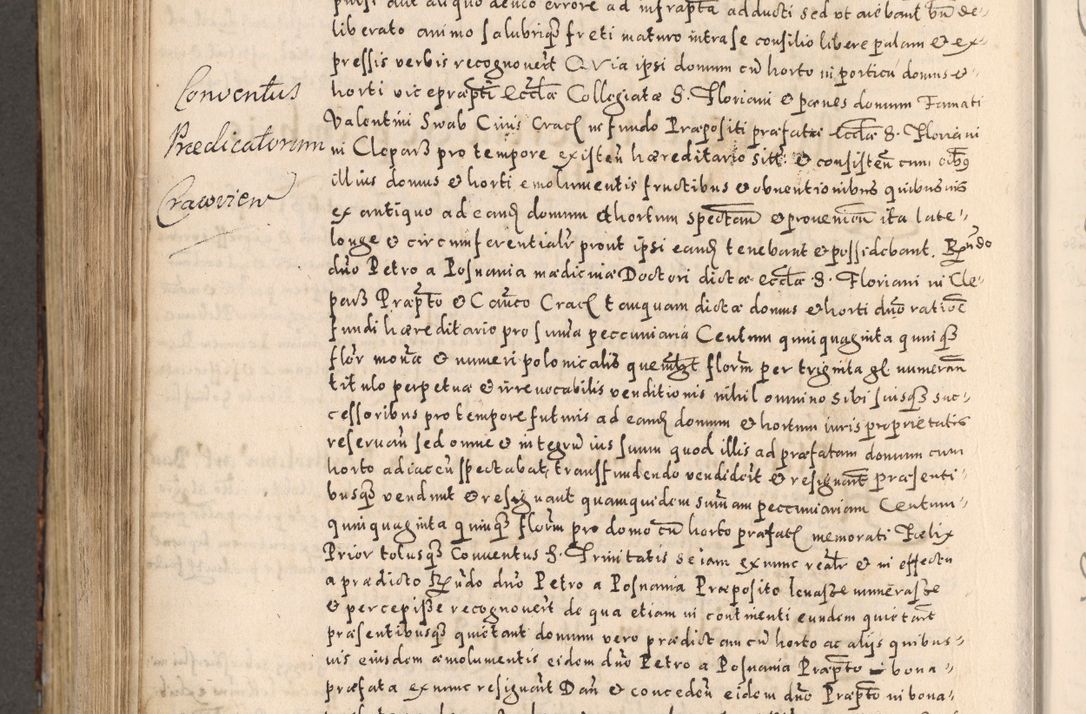 pulsi aut aliquo deuco errore ad infrapta adducti sed vt aiebant bn de-
liberato animo salubriqz freti maturo intra se consilio libere palam et ex-
pressis verbis recognouert Quia ipsi domum cu horto in porticu domus et
horti vicepraepti Eccla Collegiatae S. Floriani et paenes domum Famati
Valentini Swab Ciuis Crac in fundo Praepositi praefatae Ecclae S. Floriani
in Clepars pro tempore existen haereditario sitt et consisten cum oibus
illius domus et horti emolumentis fructibus et obuentionibus quibusuis
ex antiquo ad eand domum et hortum spectan et prouenien ita late
longe et circumferentialr prout ipsi eand tenebant et possidebant. Rndo
dno Petro a Posnania medicinae Doctori dictae Ecclae S. Floriani in Cle-
pars Praepto et Canco Crac tanquam dictae domus et horti dno ratioe
fundi haereditario pro summa peccuniaria Centum quinquaginta quinqz
flor moneta et numeri polonicalis quemlibet florm per triginta gl numeran
titulo perpetuae et irreuocabilis venditionis nihil omnino sibi suisqz suc-
cessoribus pro tempore futuris ad eand domum et hortum iuris proprietatis
reseruan sed omne et integru ius suum quod illis ad praefatam domum cum
horto adiacen spectabat, transfundendo vendidert et resignarunt Praesenti-
busqz vendunt et resignant quamquidem summam peccuniariam Centum
quinquaginta quinqz florm pro domo cu horto praefat memorati Faelix
Prior totusqz Conuentus S. Trinitatis se iam ex nunc realr et in effectu
a praedicto Rndo dno Petro a Posnania Praeposito leuasse numerasse
et percepisse recognouert de qua etiam in continenti eundem quietart
praesentibusqz quietant domum vero praedictam cu horto ac alijs quibus-
uis eiusdem aemolumentis eidem dno Petro a Posnania Praepto in bona
praefata ex nunc resignart Dan et conceden eidem dno Praepto in bona
Conventus
Praedicatorum
Cracovien